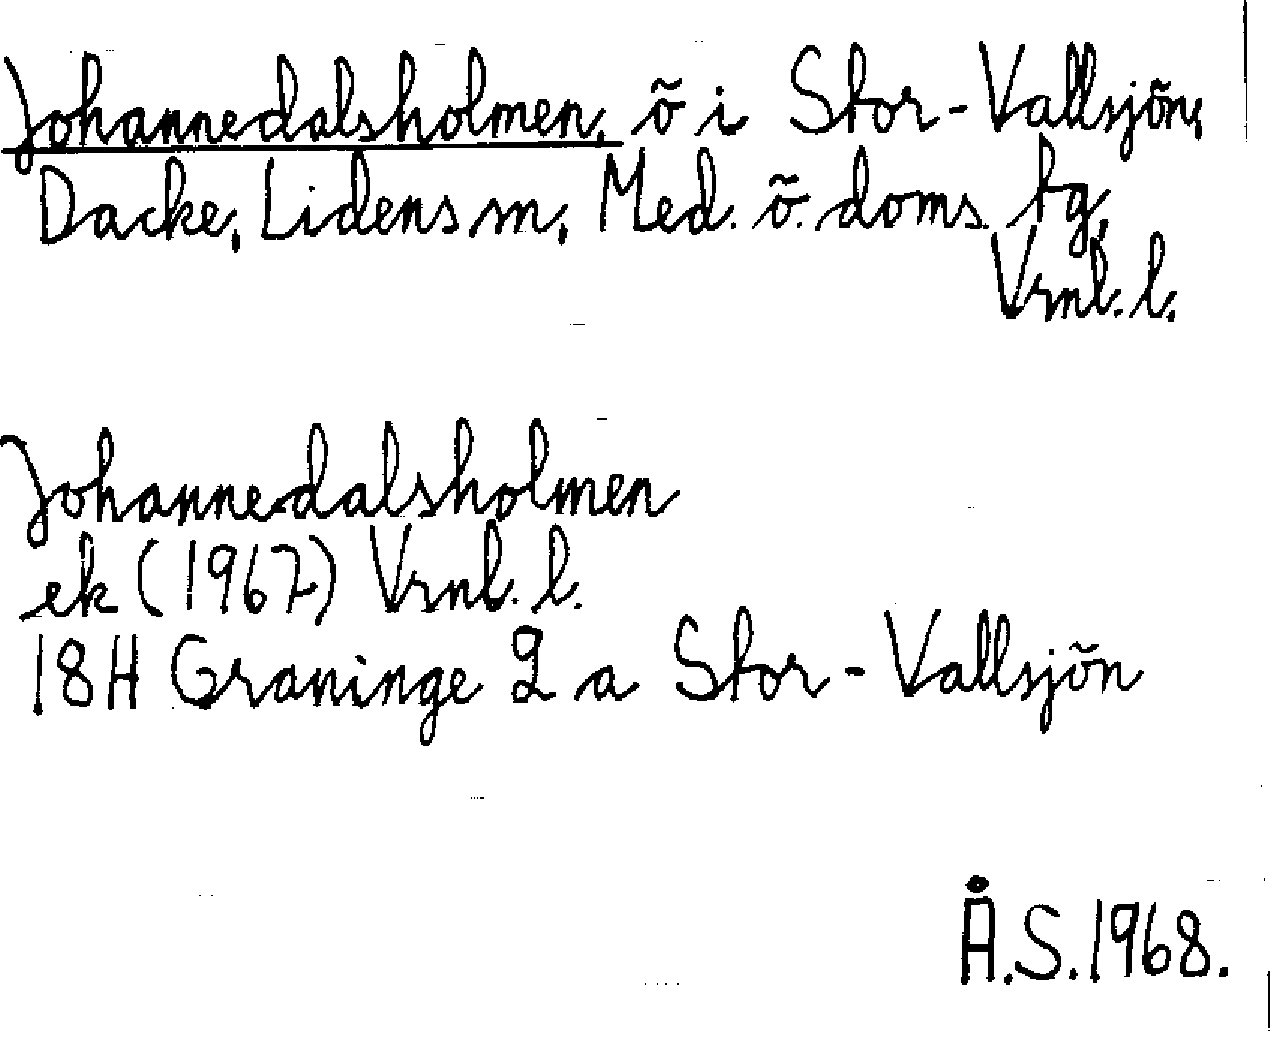 Johannedalsholmen, ö i Stor-Vallsjön,
Dacke, Lidens sn, Med. ö. doms. tg,
Vrnl. l.
Johannedalsholmen
ek (1967) Vrnl. l.
18H Graninge 2 a Stor-Vallsjön
Å.S.1968.